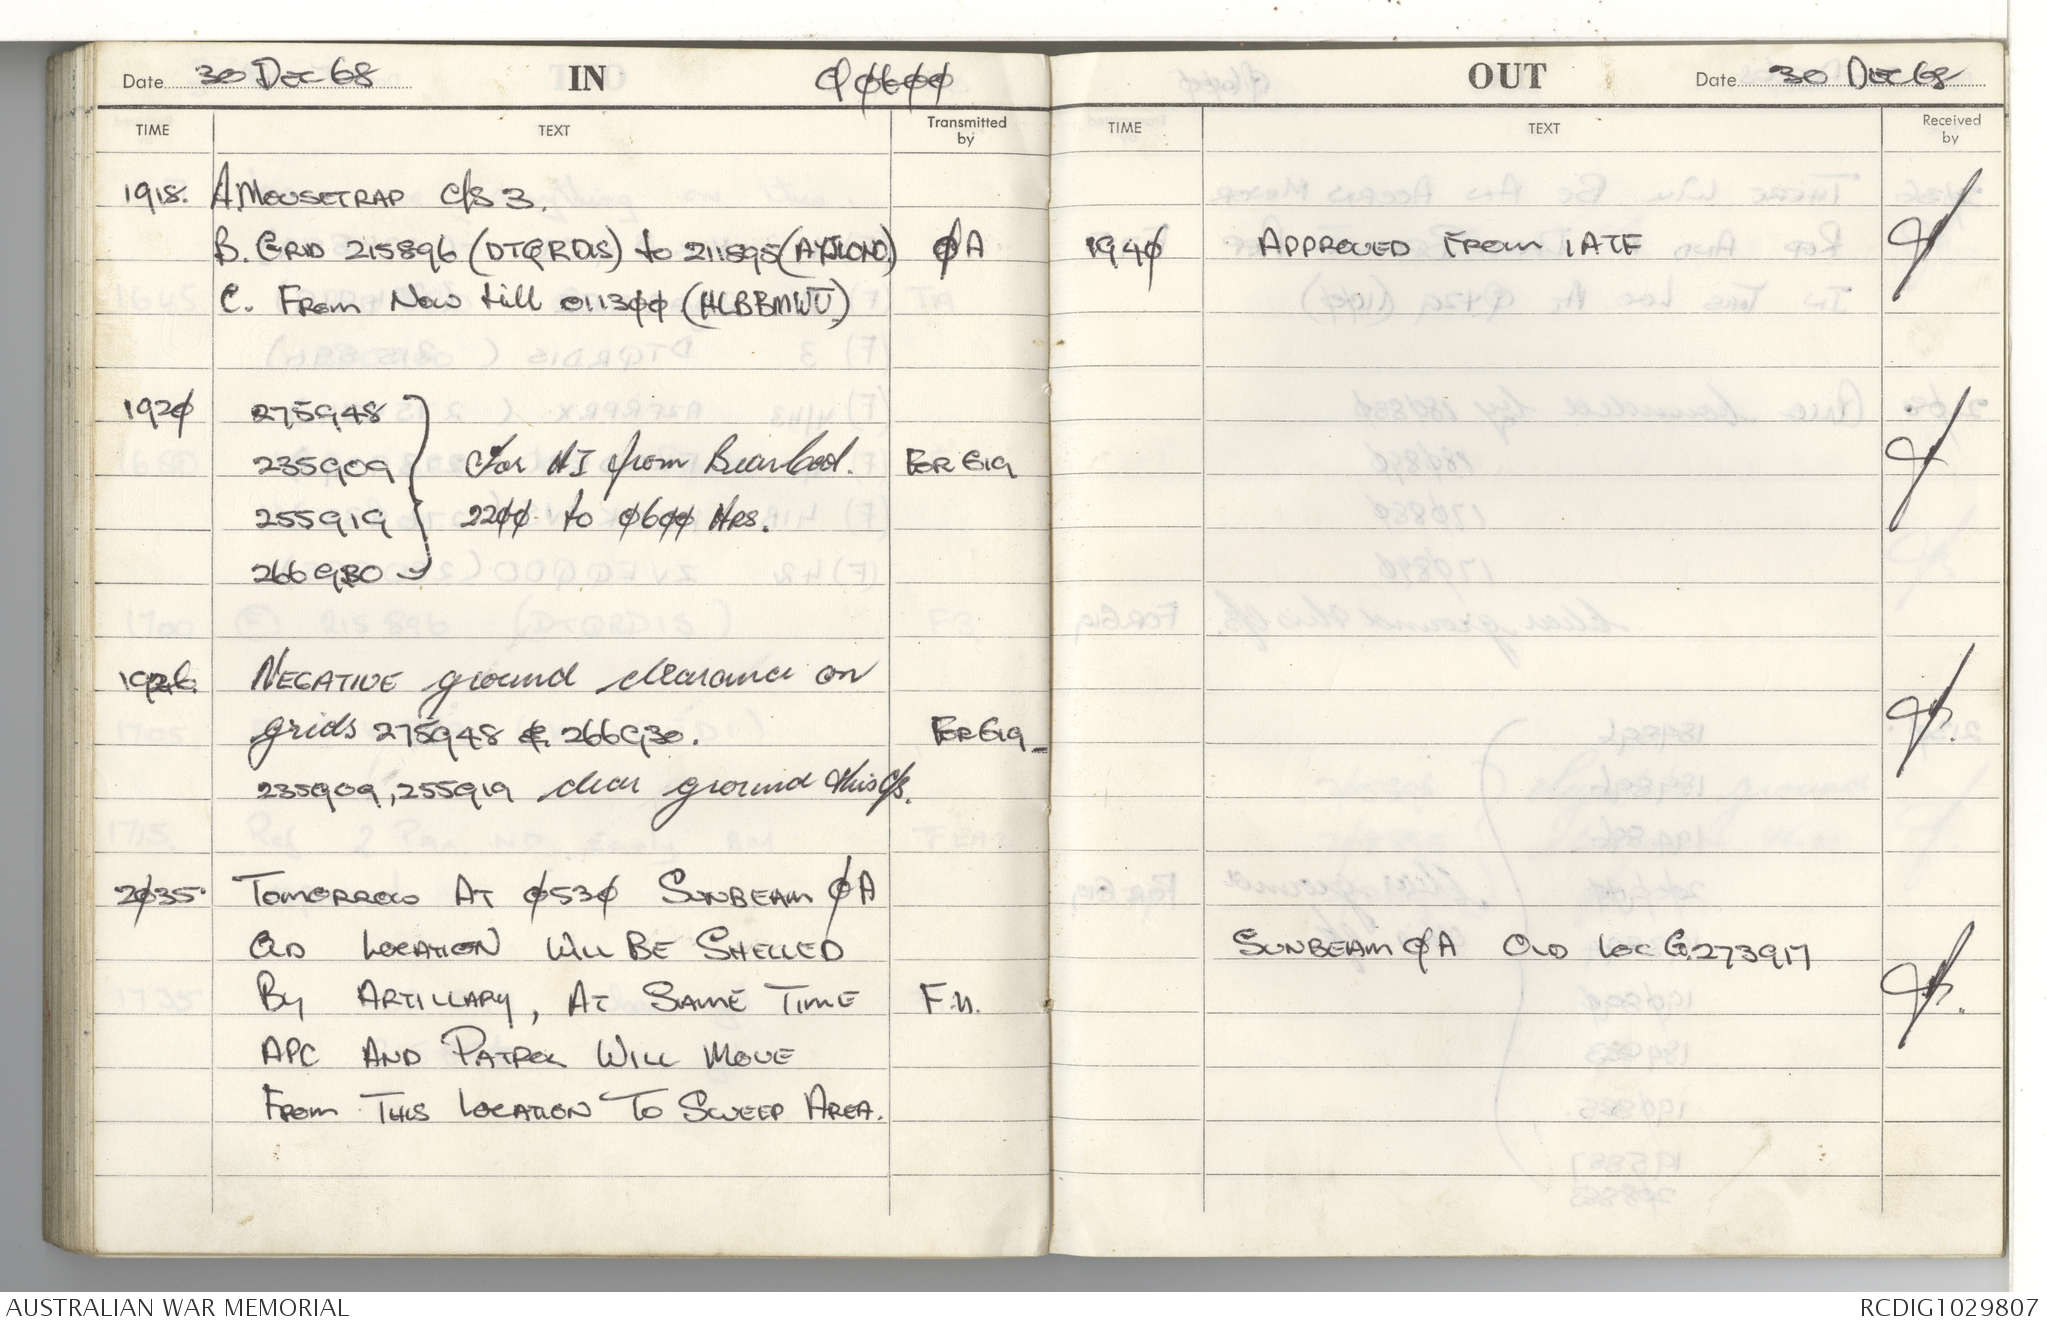 Date 30 DEC 68 IN
TIME TEXT Transmitted by
1918. A. MOUSETRAP C/S 3.
B. GRID 215896 (DTQRDIS) to 211895 (AYJLOND) ØA
C. FROM NOW till 0113ØØ (HLBBMWU)
192Ø 275948
235909 For HI from Bearcool. FOR GIQ
255919 22ØØ to Ø6ØØ HRS.
266930
1926. NEGATIVE ground clearance on
grids 275948 & 266930. FOR GIQ
235909, 255919 clear ground this c/s.
2Ø35. TOMORROW AT Ø53Ø SUNBEAM ØA
OLD LOCATION WILL BE SHELLED
BY ARTILLARY, AT SAME TIME F.N.
APC AND PATROL WILL MOVE
FROM THIS LOCATION TO SWEEP AREA.
OUT Date 30 DEC 68
TIME TEXT Received by
194Ø APPROVED FROM 1ATF
SUNBEAM ØA OLD LOC G.273917
AUSTRALIAN WAR MEMORIAL
RCDIG1029807